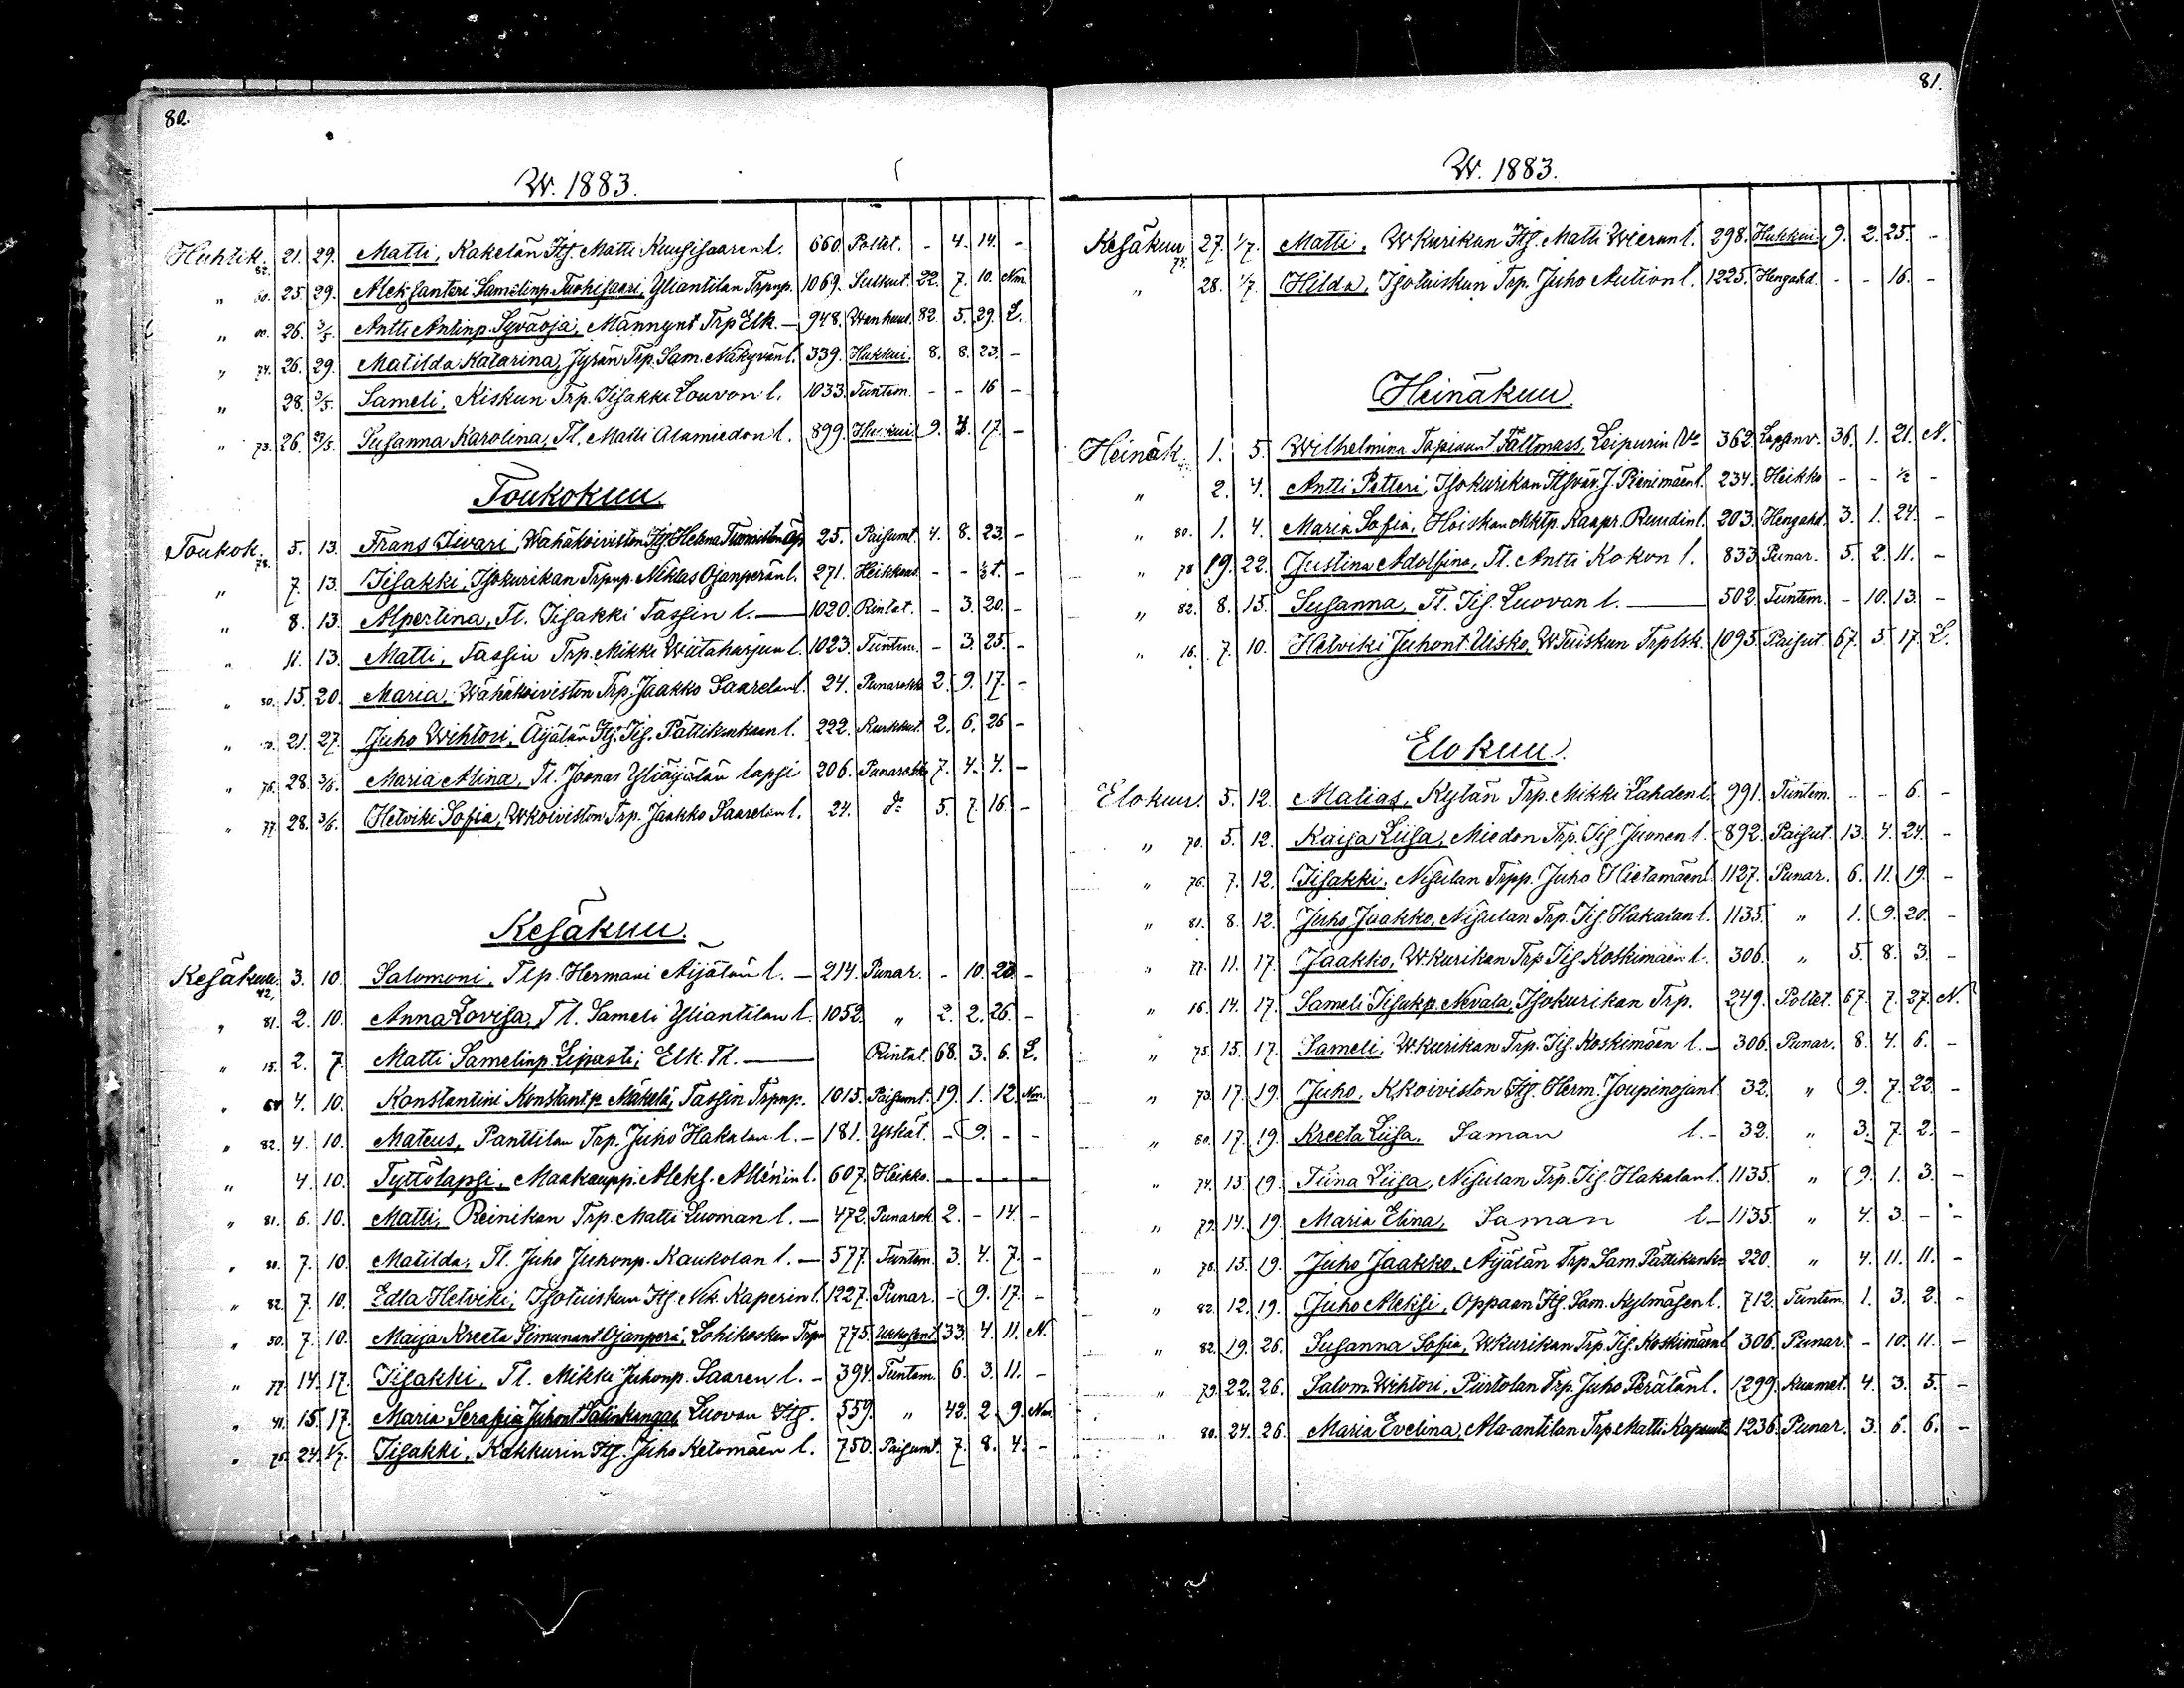 80.
W. 1883.
Huhtik. 82. 21. 29. Matti, Kakelan Itj. Matti Kuusisaaren l. 660. Poltet. - 4. 14. -
" 60. 25. 29. Aleksanteri Samelinp. Tuohisaari, Yliantilan Trpnp. 1069. Sulkut. 22. 7. 10. Nm.
" 00. 26. 3/5. Antti Antinp. Syväoja, Männynt Trp Elk. — 948. Wanhuut. 82. 5. 29. L.
" 74. 26. 29. Matilda Katarina, Jyrän Trp. Sam. Näkyvän l. 339. Hukkui. 8. 8. 23. -
" 28. 3/5. Sameli, Kiskun Trp. Iisakki Louvon l. 1033. Tuntem. - - 16 -
" 73. 26. 29/5. Susanna Karolina, Tl. Matti Alamiedon l. 899. Hukkui 9. 3. 17. -
Toukokuu.
Toukok. 78. 5. 13. Frans Iivari, Wähäkoiviston Itj. Helena Tuomiston Äp. 25. Paisumt. 4. 8. 23. -
" 7. 13. Iisakki, Isokurikan Trpnp. Niklas Ojanperän l. 271. Heikkout. - - ½ t. -
" 8. 13. Alpertina, Tl. Iisakki Tassin l. — 1020. Rintat. - 3. 20. -
" 11. 13. Matti, Tassin Trp. Mikki Wiitaharjun l. 1023. Tuntem. - 3. 25. -
" 80. 15. 20. Maria, Wähäkoiviston Trp. Jaakko Saarelan l. 24. Punarokk. 2. 9. 17. -
" 80. 21. 27. Juho Wihtori, Äijälän Itj. Iis. Pättikankaan l. 222. Kurkkut. 2. 6. 26 -
" 76. 28. 3/6. Maria Alina, Tl. Joonas Yliäijälän lapsi 206. Punarokk. 7. 4. 4. —
" 77. 28. 3/6. Hetviki Sofia, W.koiviston Trp. Jaakko Saarelan l. 24. do 5. 7. 16. -
Kesäkuu.
Kesäkuu. 42. 3. 10. Salomoni, Tlp. Hermani Äijälän l. — 214. Punar. - 10. 20. -
" 81. 2. 10. Anna Lovisa, Tl. Sameli Yliantilan l. 1052. " 2. 2. 26. -
" 15. 2. 7. Matti Samelinp. Leipasti, Elk. Tl. — Rintat. 68. 3. 6. L.
" 64 4. 10. Konstantini Konstant.p. Mäkelä, Tassin Trpnp. 1015. Paisumt. 19. 1. 12. Nm.
" 82. 4. 10. Mateus, Panttilan Trp. Juho Hakalan l. - 181. Yskät. - 9. - -
" 4. 10. Tyttölapsi, Maakaupp. Aleks. Allénin l. 607. Heikko. - - - -
" 81. 6. 10. Matti, Reinikan Trp. Matti Luoman l. — 472. Punarok 2. - 14. -
" 80. 7. 10. Matilda, Tl. Juho Juhonp. Kaukolan l. — 577. Tuntem. 3. 4. 7. -
" 82. 7. 10. Edla Hetviki, Isotuiskun Itj. Nik. Kaperin l. 1227. Punar. - 9. 17. -
" 50. 7. 10. Maija Kreeta Simunant. Ojanperä, Lohikosken Trpn 775. 33. 4. 11. N.
" 77. 14. 17. Iisakki, Tl. Mikki Juhonp. Saaren l. - 394. Tuntem. 6. 3. 11. -
" 41. 15. 17. Maria Serafia Juhont. Salinkangas Luovan Itj. 559. " 42. 2. 9. Nm.
" 75. 24. 1/7. Iisakki, Kakkurin Itj. Juho Ketomäen l. 750. Paisumt. 7. 8. 4. -
81.
W. 1883.
Kesäkuu 74. 27. 1/7. Matti, W.Kurikan Itj. Matti Wierun l. 298. Hukkui. 9. 2. 25. -
" 28. 1/7. Hilda, Isotuiskun Trp. Juho Aution l. 1225. Hengahd. - - 16. -
Heinäkuu.
Heinäk. 1. 5. Wilhelmina Tapiaant. Fältmass, Leipurin Vo 362. Lapsenv. 36. 1. 21. N.
" 2. 4. Antti Petteri, Isokurikan Itsväv. J. Pienimäen l. 234. Heikko - - ½ -
" 80. 1. 4. Maria Sofia, Hoiskan Mktp. Kaapr. Rundin l. 203. Hengahd. 3. 1. 24. -
" 78 19. 22. Justina Adolfina, Tl. Antti Kokon l. 833. Punar. 5. 2. 11. -
" 82. 8. 15. Susanna, Tl. Iis. Luovan l. — 502. Tuntem. - 10. 13. -
" 16. 7. 10. Hetviki Juhont. Uisko, W.Tuiskun Trplsk. 1095. Paisut. 67. 5. 17. L.
Elokuu.
Elokuu. 5. 12. Matias, Kylän Trp. Mikki Lahden l. 991. Tuntem. - - 6. -
" 70. 5. 12. Kaisa Liisa, Miedon Trp. Iis. Juonen l. 892. Paisut. 13. 4. 24. -
" 76. 7. 12. Iisakki, Nisulan Trpp. Juho Hietamäen l. 1127. Punar. 6. 11. 19. -
" 81. 8. 12. Juho Jaakko, Nisulan Trp. Iis. Hakalan l. 1135. " 1. 9. 20. -
" 77. 11. 17. Jaakko, W.kurikan Trp. Iis. Koskimäen l. 306. " 5. 8. 3. -
" 16. 14. 17. Sameli Iisakp. Nevala, Isokurikan Trp. 249. Poltet. 67. 7. 27. N.
" 75. 15. 17. Sameli, W.kurikan Trp. Iis. Koskimäen l. - 306. Punar. 8. 4. 6. -
" 73. 17. 19. Juho, K.koiviston Itj. Herm. Joupinojan l. 32. " 9. 7. 22. -
" 80. 17. 19. Kreeta Liisa, Saman l. - 32. " 3. 7. 2. -
" 74. 15. 19. Tiina Liisa, Nisulan Trp. Iis. Hakalan l. 1135. " 9. 1. 3. -
" 79. 14. 19. Maria Elina, Saman l. - 1135. " 4. 3. - -
" 78. 15. 19. Juho Jaakko, Äijälän Trp. Sam. Pättikank. 220. " 4. 11. 11. -
" 82. 12. 19. Juho Aleksi, Oppaan Itj. Sam. Kylmäsen l. 712. Tuntem. 1. 3. 2. -
" 82. 19. 26. Susanna Sofia, W.kurikan Trp. Iis. Koskimäen l. 306. Punar. - 10. 11. -
" 79. 22. 26. Salom. Wihtori, Piirtolan Trp. Juho Perälän l. 1299. Kuumet. 4. 3. 5. -
" 80. 24. 26. Maria Evelina, Ala-antilan Trp. Matti 1236. Punar. 3. 6. 6. -